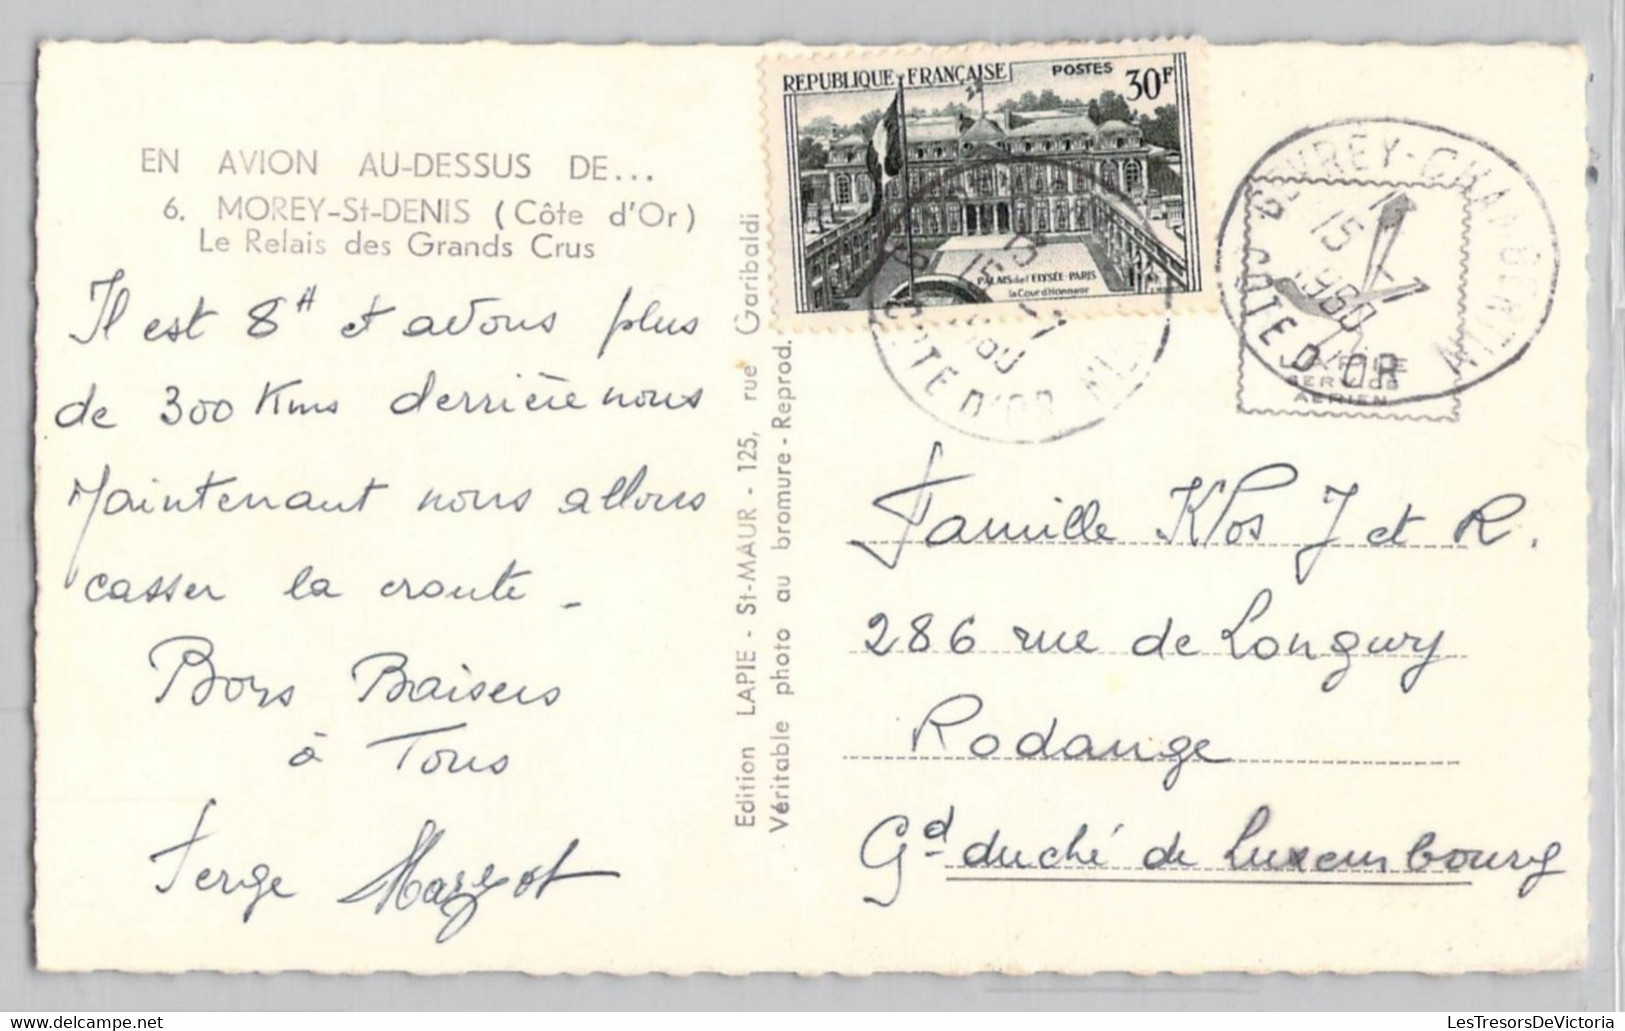 EN AVION AU-DESSUS DE...
6. MOREY-St-DENIS (Côte d'Or)
Le Relais des Grands Crus
Il est 8 H et avons plus
de 300 Kms derrière nous
Maintenant nous allons
casser la croute -
Bons Baisers
à Tous
Serge Margot
Edition LAPIE - St-MAUR - 125, rue Garibaldi
Véritable photo au bromure - Reprod.
REPUBLIQUE FRANÇAISE POSTES 30F
PALAIS de l'ELYSÉE-PARIS
la Cour d'Honneur
15
-1
COTE D'OR
GEVREY-CHAMBERTIN
15 -1
1960
COTE D'OR
SERVICE
AERIEN
Famille Klos J et R.
286 rue de Longwy
Rodange
Gd duché de Luxembourg
LesTresorsDeVictoria